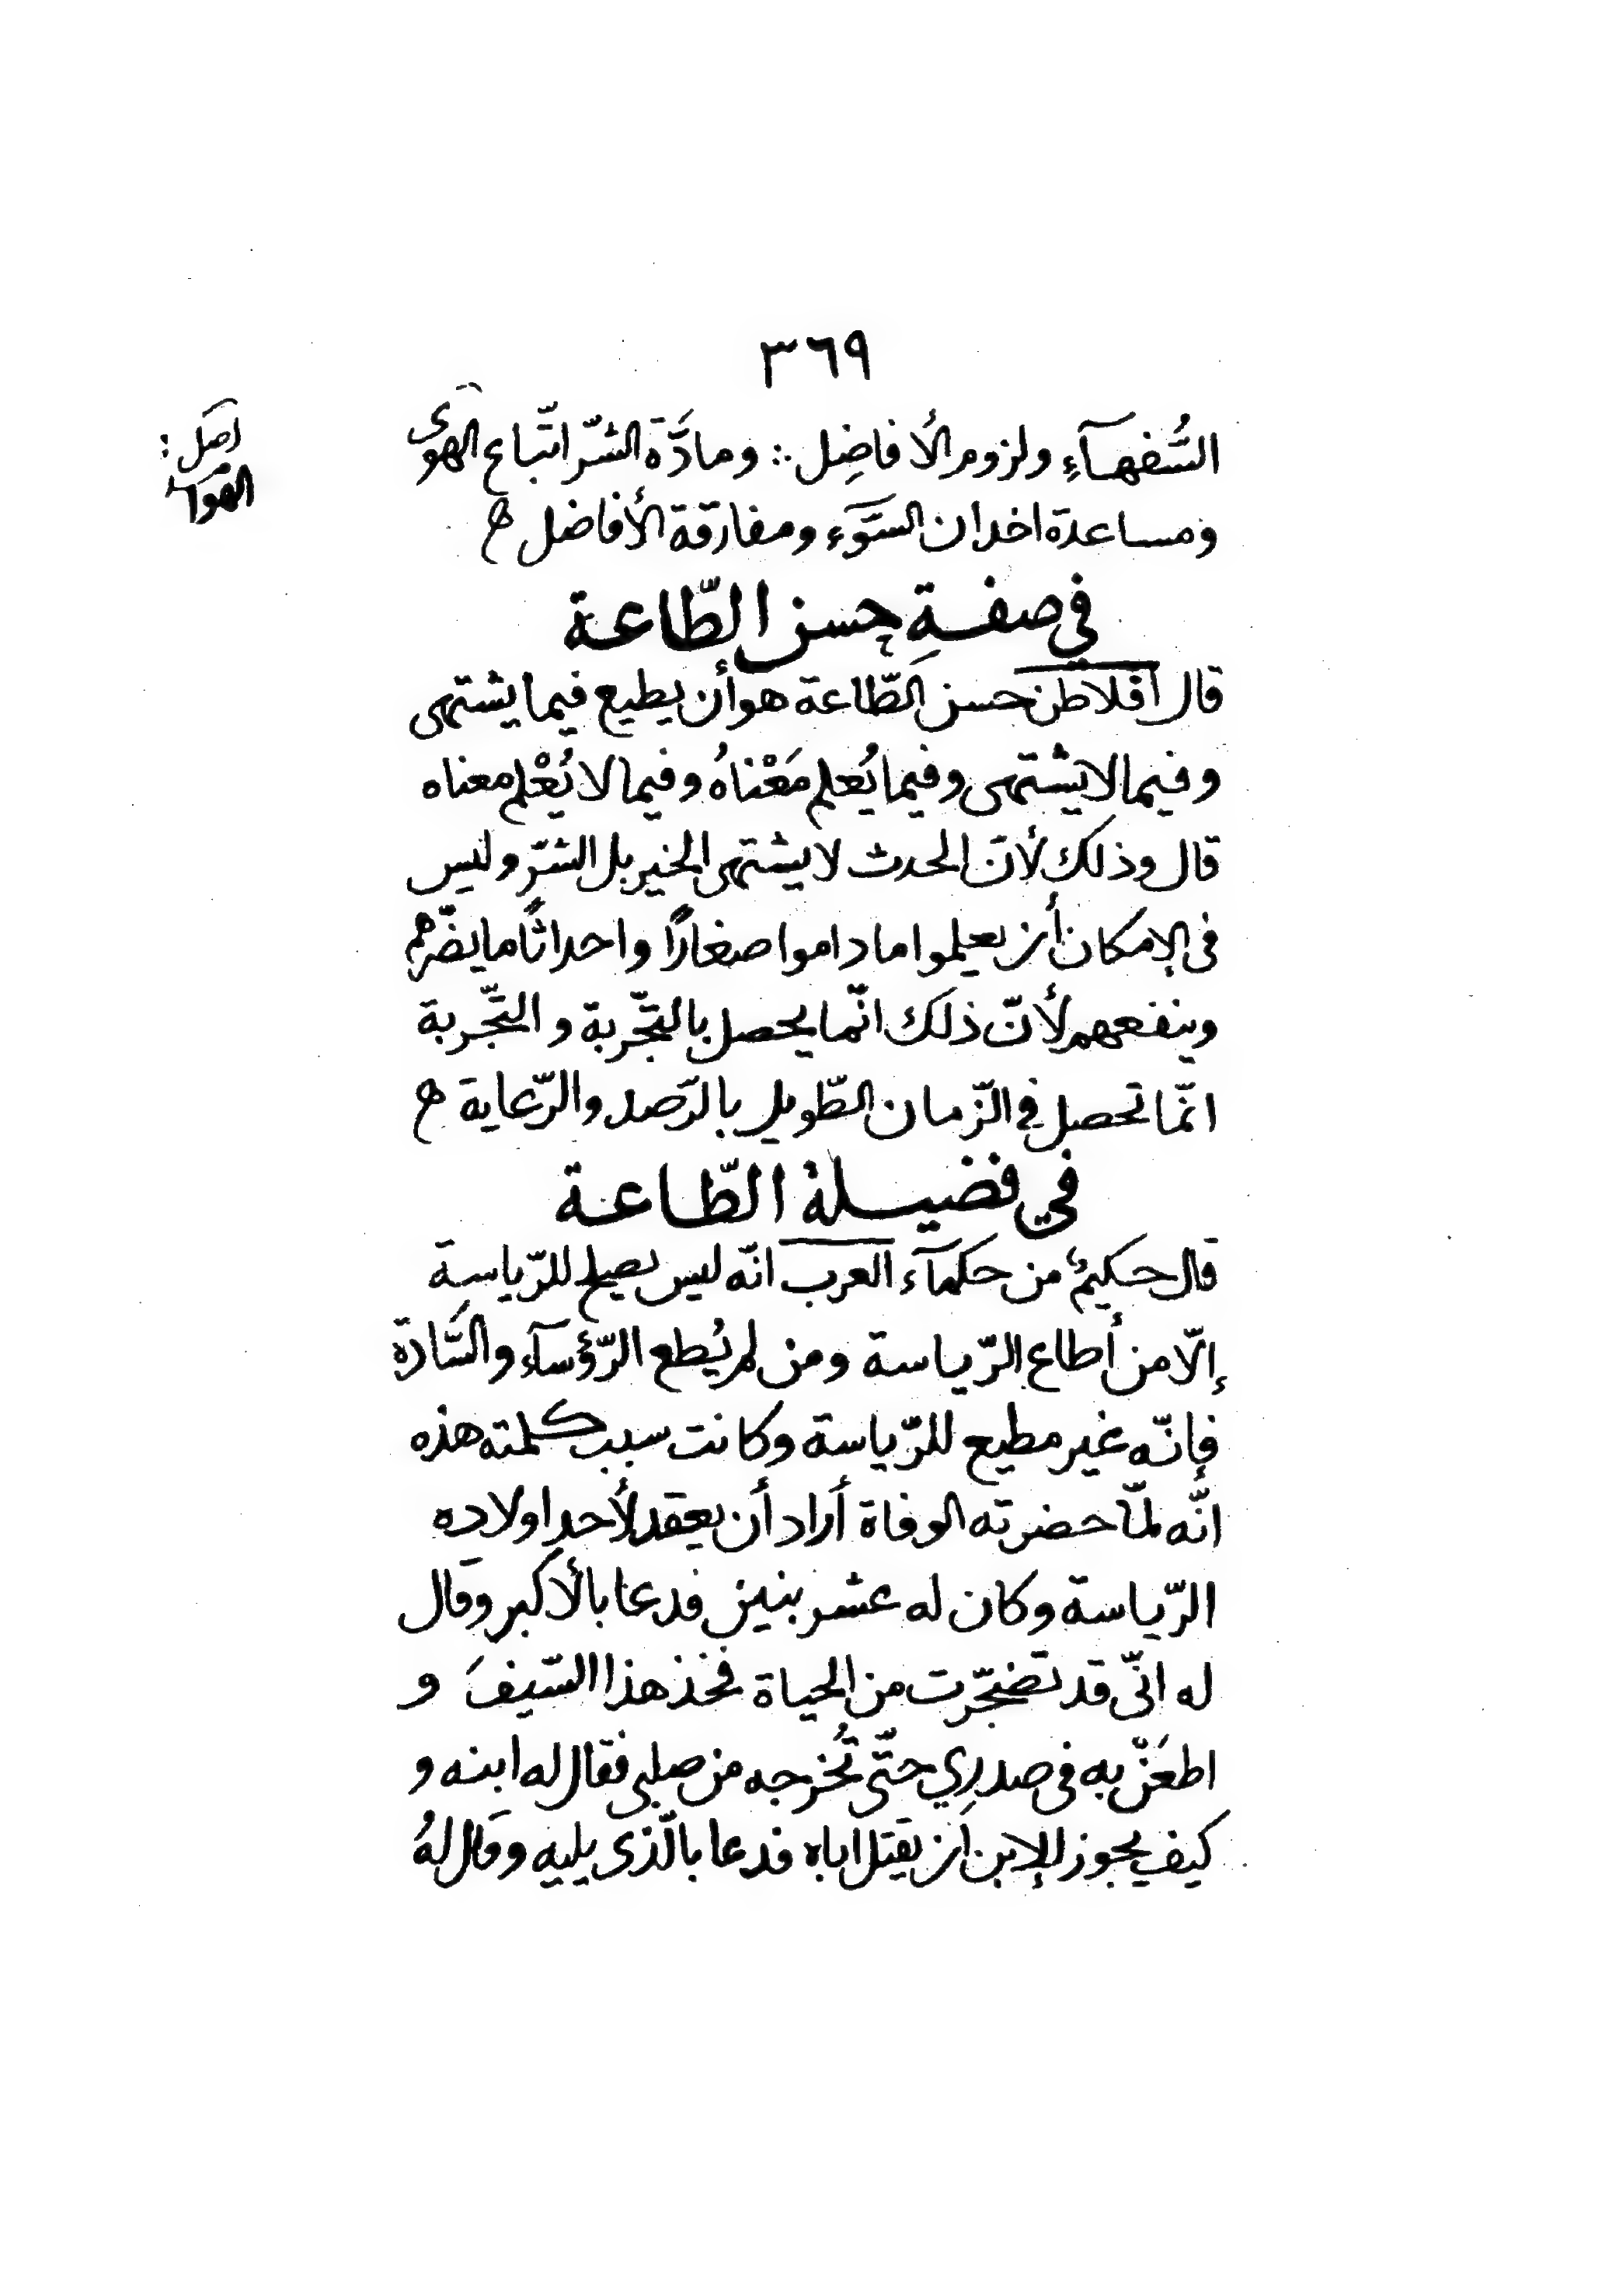 ٣٦٩
السُّفهآءِ ولزوم الأفاضِل ∴ ومادَّة الشرّ اتّباع الهوى
ومساعدة اخدان السَّوَء ومفارقة الأفاضل
في صفةِ حسن الطّاعة
قال افلاطن حسن الطّاعة هو أن يطيع فيما يشتهى
وفيما لا يشتهى وفيما يُعلم مَعْناهُ وفيما لا يُعْلم معناه
قال وذلك لأنّ الحدث لا يشتهى الخير بل الشرّ وليس
فى الإمكان أن يعلموا ما داموا صغارًا واحداثًا ما يضّرهم
وينفعهم لأنّ ذلك انّما يحصل بالتّجربة والتّجربة
انّما تحصل في الزّمان الطّويل بالرّصد والرّعاية
في فضيلة الطّاعة
قال حكيمٌ من حكمآء العرب انّه ليس يصلح للرّياسة
إلّا من أطاع الرّياسة ومن لم يُطع الرّؤسآء والسَّادة
فإنّه غير مطيع للرّياسة وكانت سبب كلمته هذه
أنّه لمّا حضرته الوفاة أراد أن يعقد لأحد اولاده
الرّياسة وكان له عشر بنين فدعا بالأكبر وقال
له انّى قد تضجّرت من الحياة فخذ هذا السّيفَ و
اطعَنْ به فى صدرِي حتّى تُخرجه من صلبى فقال له ابنه و
كيف يجوز للإبن ان يقتل اباه فدعا بالّذى يليه وقال لهُ
اصل: